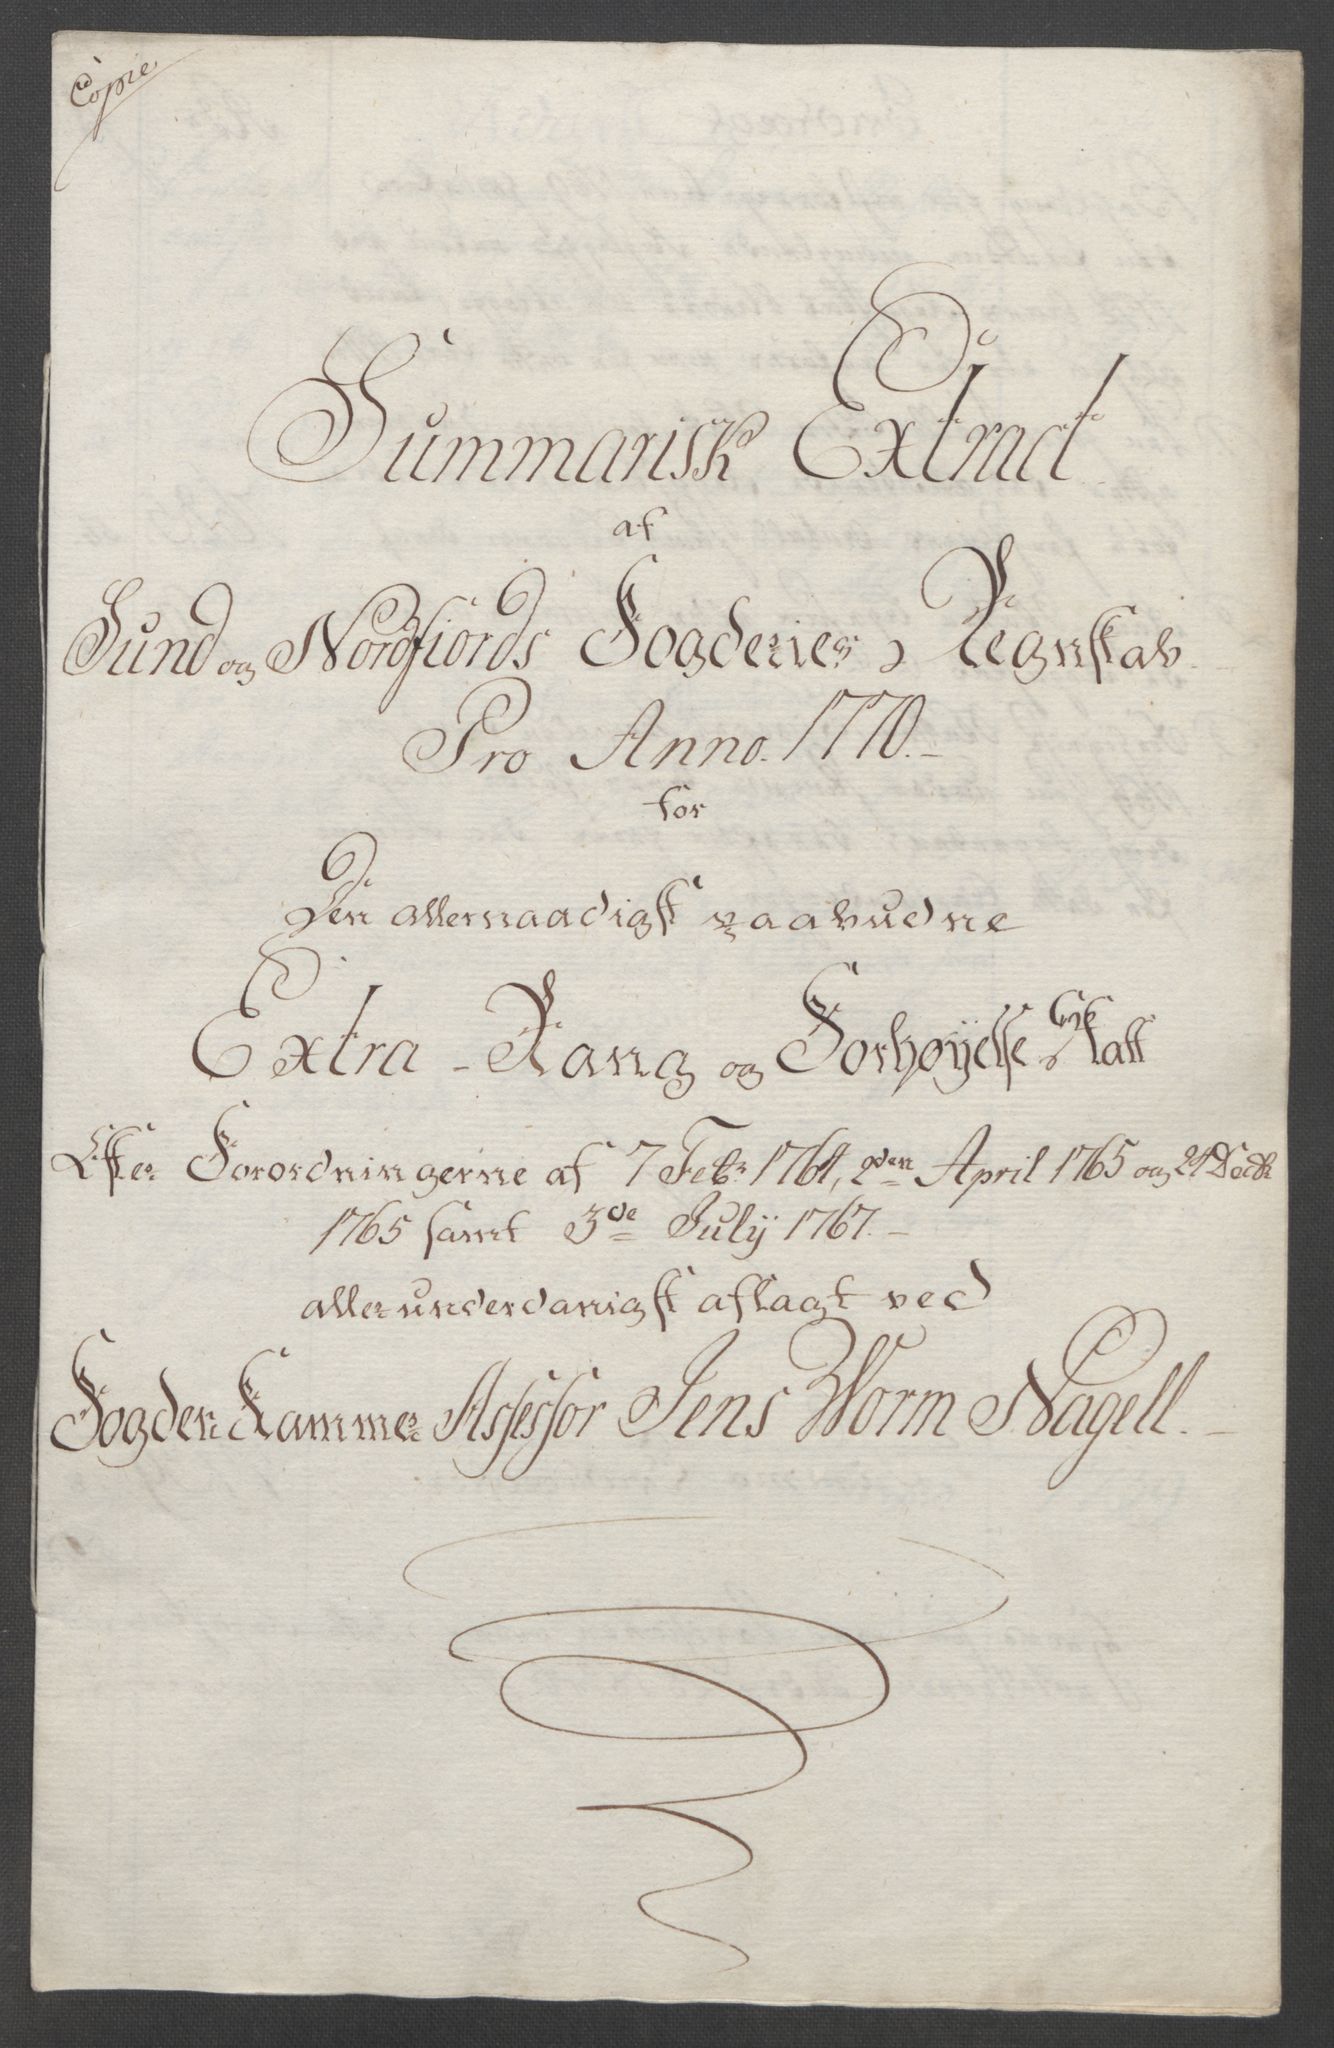 Copie
Summarisk Extract
af
Sund og Nordfiords Fogderies Regnskab
Pro Anno. 1770.
for
Den allernaadigst paabudne
Extra-Rang og Forhøyelse Skatt
Efter Forordningerne af 7 Febr 1764, 2den April 1765 og 24 Decbr
1765 samt 3de Julÿ 1767.
allerunderdanigst aflagt ved
Fogden Kammer Assessor Jens Worm Nagell.